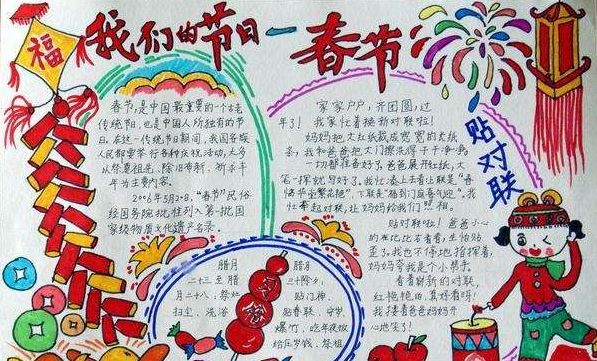 福
我们的节日一春节
春节,是中国最重要的一个古老
传统节日,也是中国人所独有的节
日。在这一传统节日期间,我国各族
人民都要举行各种庆祝活动,大多
以祭奠祖先、除旧布新、祈求丰
年为主要内容。
2006年5月20日,“春节”民俗
经国务院批准列入第一批国
家级物质文化遗产名录。
家家户户,齐团圆,过
年了!我家忙着换新对联啦!
妈妈把大红纸裁成宽宽的长纸
条,我和爸爸把大门擦洗得干干净净,
一切都准备好了。爸爸展开红纸,大
笔一挥就写好了。我忙凑上去看上联是“春
节”,下联是“福到门庭喜气迎”。我
忙起对联,让妈妈给我们照相。
贴对联
贴对联啦!爸爸小心
的比比右看看,生怕贴
歪了。我也不停地指挥着,
妈妈夸我是个小帮手。
看着新的对联
红艳艳的,真好看呀!
我搂着爸爸妈妈开
心地笑了!
腊月
二十三至腊
月二十八:祭灶
扫尘、洗浴
腊月
三十除夕:
贴门神、
贴春联、守岁、
爆竹、吃年夜饭
给压岁钱、祭祖